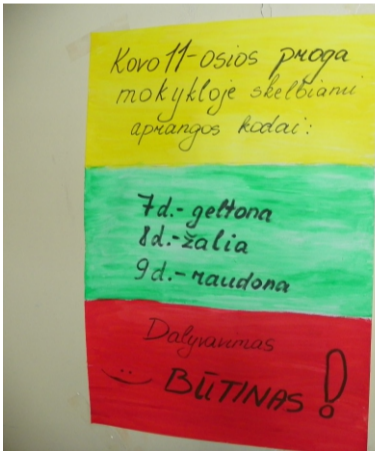 Kovo 11-osios proga
mokykloje skelbiami
aprangos kodai:
7d.- geltona
8d.-žalia
9d.-raudona
Dalyvavimas
BŪTINAS!